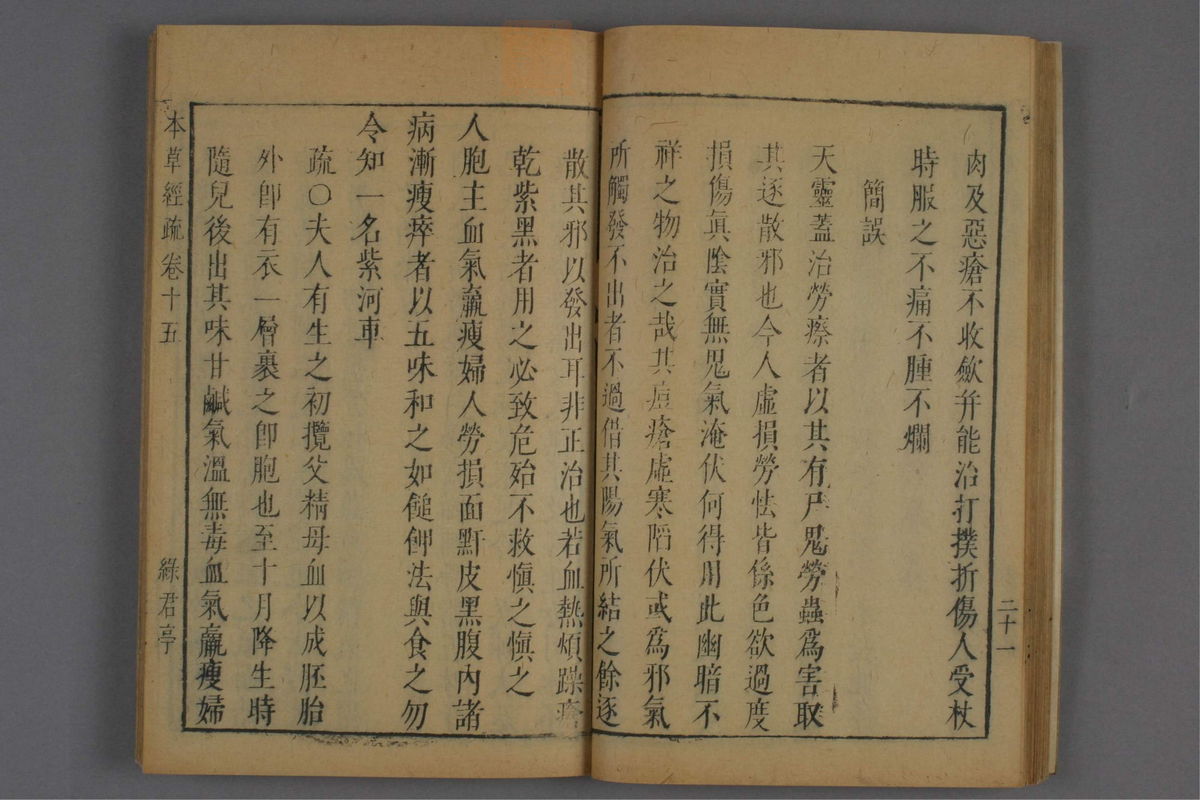 二十一
肉及惡瘡不收歛并能治打撲折傷人受杖
時服之不痛不腫不爛
簡誤
天靈蓋治勞瘵者以其有尸鬼勞蟲爲害取
其逐散邪也今人虛損勞怯皆係色欲過度
損傷眞陰實無鬼氣淹伏何得用此幽暗不
祥之物治之哉其痘瘡虛寒陷伏或爲邪氣
所觸發不出者不過借其陽氣所結之餘逐
散其邪以發出耳非正治也若血熱煩躁瘡
乾紫黑者用之必致危殆不救愼之愼之
人胞主血氣羸瘦婦人勞損面䵟皮黑腹內諸
病漸瘦瘁者以五味和之如䭔䬪法與食之勿
令知一名紫河車
疏〇夫人有生之初攬父精母血以成胚胎
外卽有衣一層裹之卽胞也至十月降生時
隨兒後出其味甘鹹氣溫無毒血氣羸瘦婦
本草經疏 卷十五 綠君亭